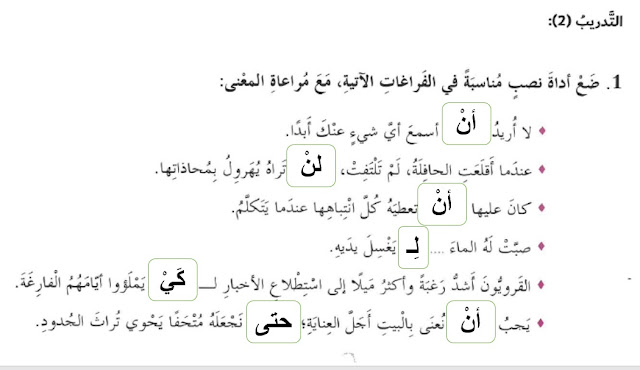 التَّدريبُ (2):
1. ضَعْ أداةَ نصبٍ مُناسبَةً في الفَراغاتِ الآتيةِ، مَعَ مُراعاةِ المعْنى:
♦ لا أُريدُ أنْ أسمعَ أيَّ شيءٍ عنْكَ أبدًا.
♦ عندَما أَقلَعَتِ الحافِلَةُ، لَمْ تَلْتَفِتْ، لنْ تَراهُ يُهَروِلُ بِمُحاذاتِها.
♦ كانَ عليها أنْ تعطيَهُ كُلَّ انْتِباهِها عندَما يَتَكلَّمُ.
♦ صبَّتْ لَهُ الماءَ .... لِـ يَغْسِلَ يدَيهِ.
♦ القَرويُّونَ أَشدُّ رَغبَةً وأكثرُ مَيلًا إلى اسْتِطْلاعِ الأخبارِ لــ كَيْ يَمْلَؤوا أيّامَهُمُ الْفارِغَةَ.
♦ يَجبُ أنْ نُعنَى بِالْبيتِ أَجَلَّ العِنايَةِ؛ حتى نَجْعَلَهُ مُتْحَفًا يَحْوي تُراثَ الجُدودِ.